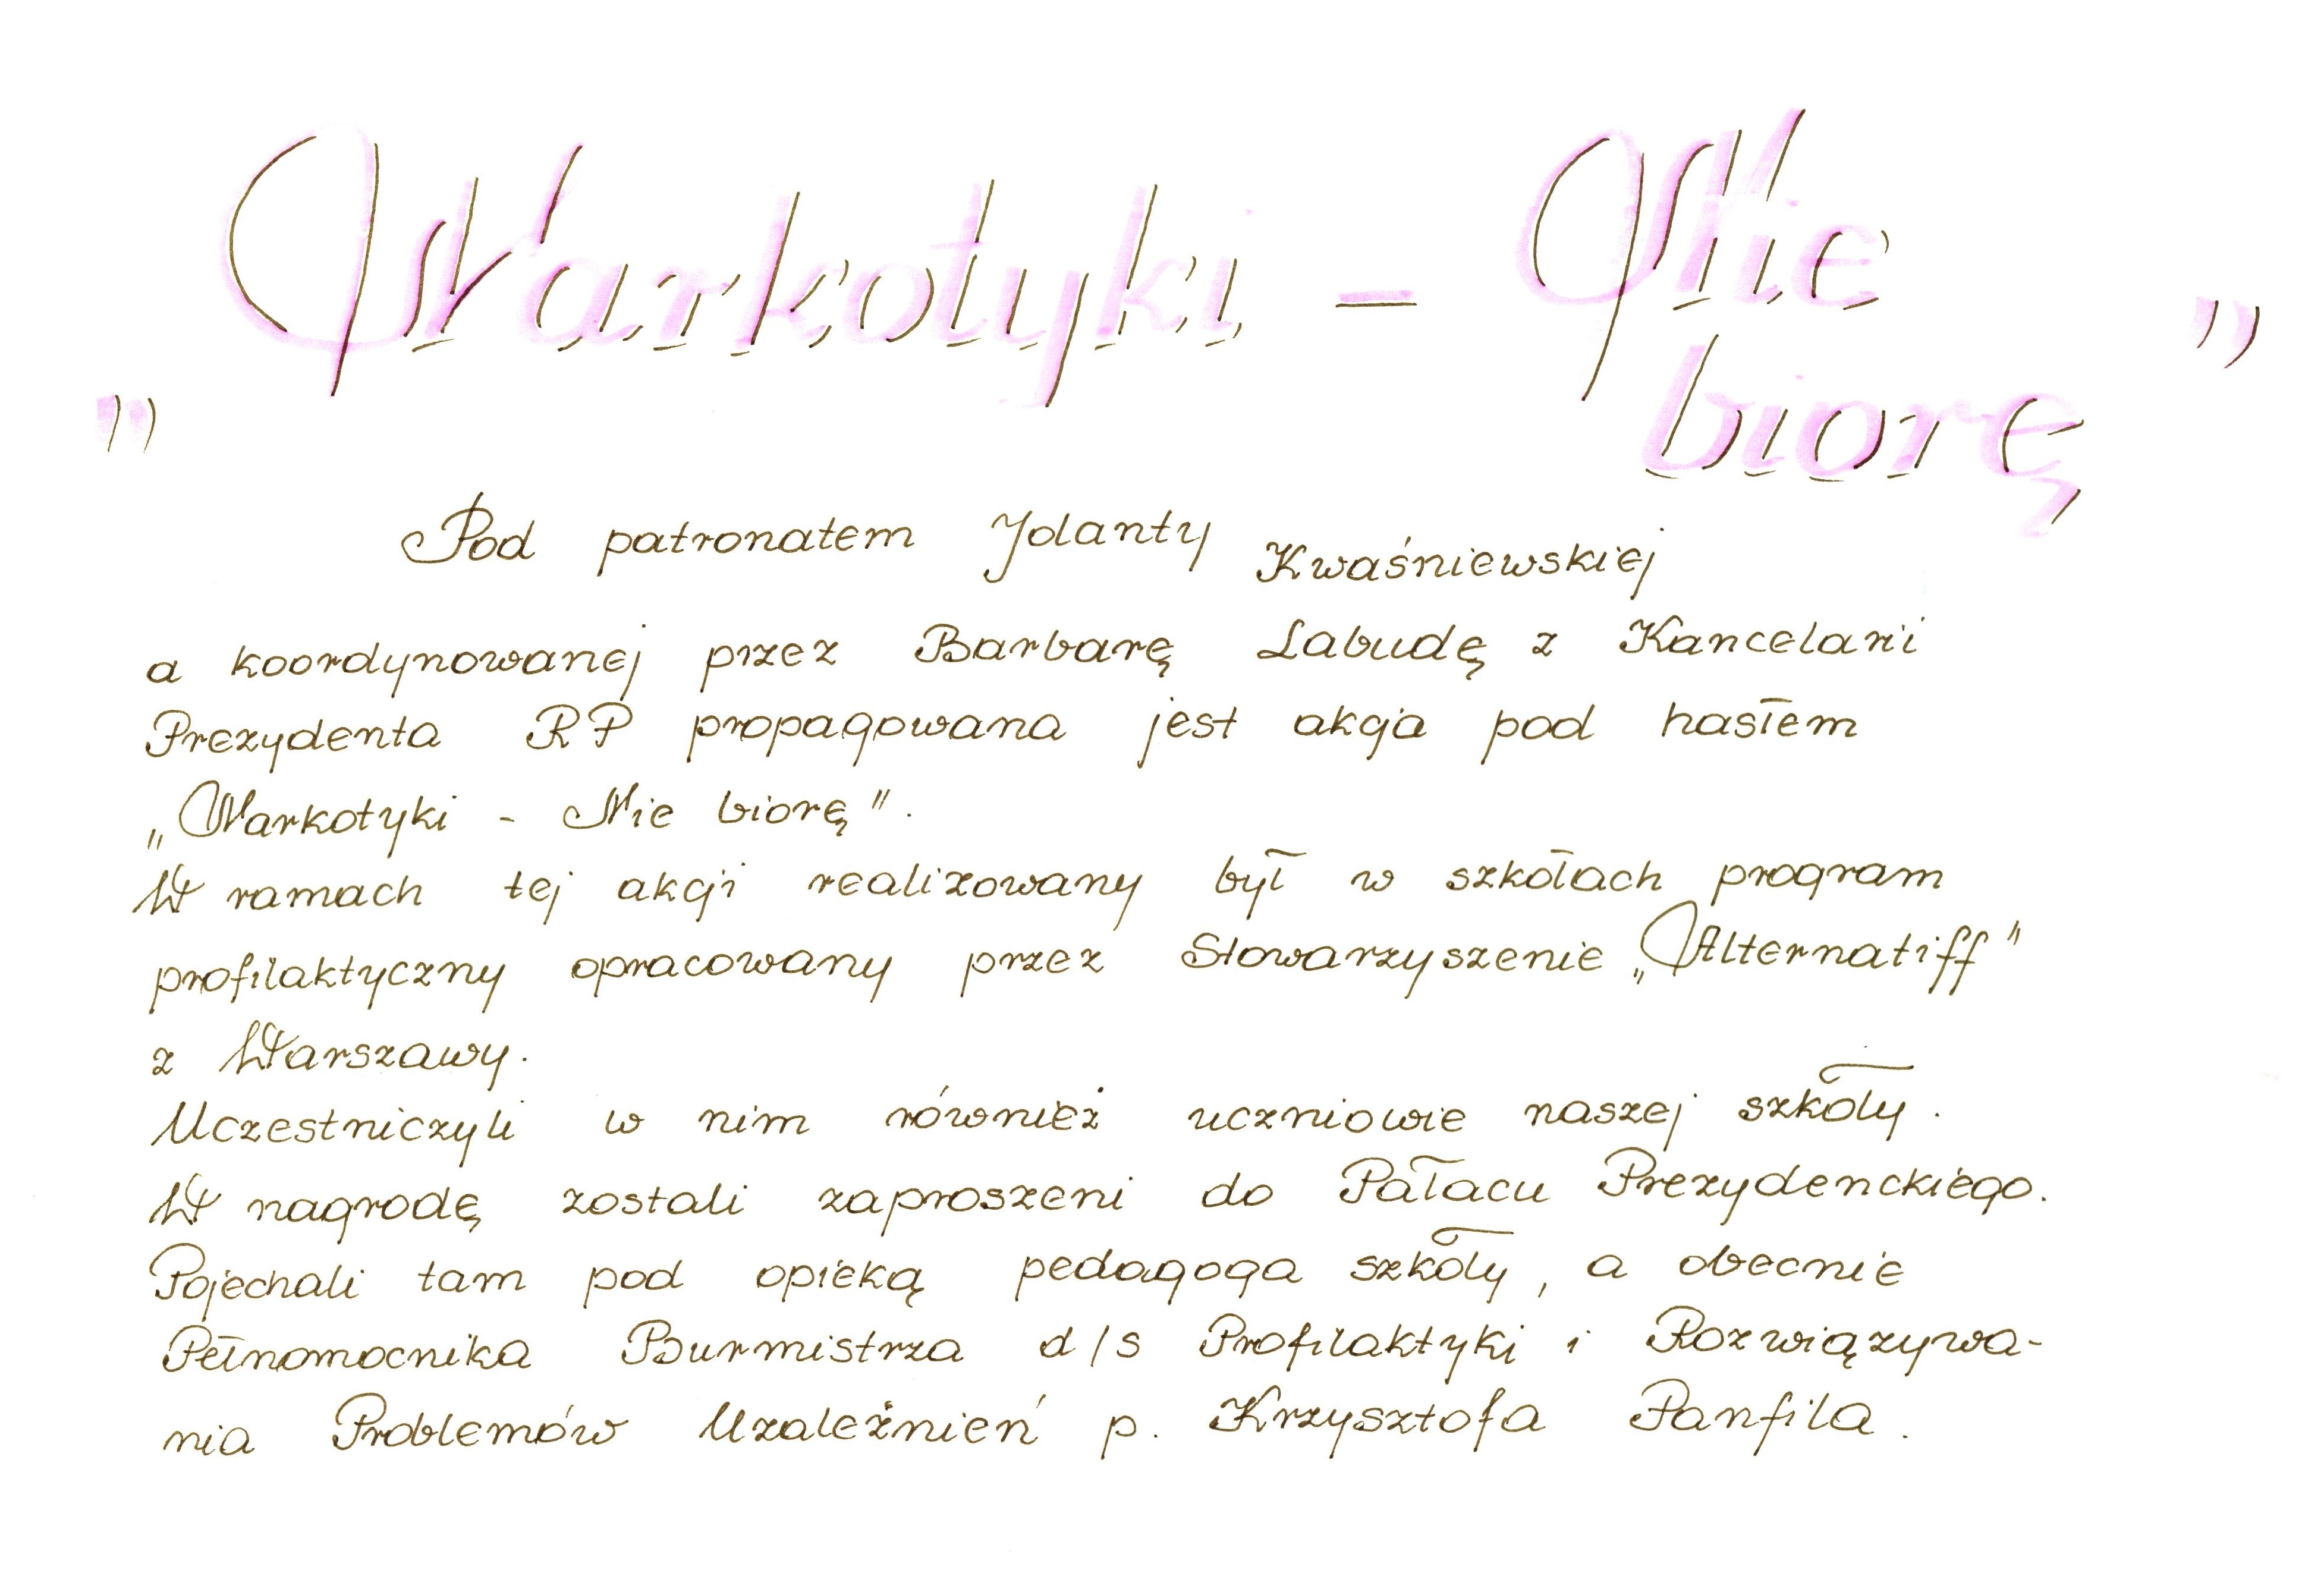 „Narkotyki – Nie
biorę”
Pod patronatem Jolanty Kwaśniewskiej
a koordynowanej przez Barbarę Labudę z Kancelarii
Prezydenta RP propagowana jest akcja pod hasłem
„Narkotyki - Nie biorę”.
W ramach tej akcji realizowany był w szkołach program
profilaktyczny opracowany przez Stowarzyszenie „Alternatiff”
z Warszawy.
Uczestniczyli w nim również uczniowie naszej szkoły.
W nagrodę zostali zaproszeni do Pałacu Prezydenckiego.
Pojechali tam pod opieką pedagoga szkoły, a obecnie
Pełnomocnika Burmistrza d/s Profilaktyki i Rozwiązywa-
nia Problemów Uzależnień p. Krzysztofa Panfila.